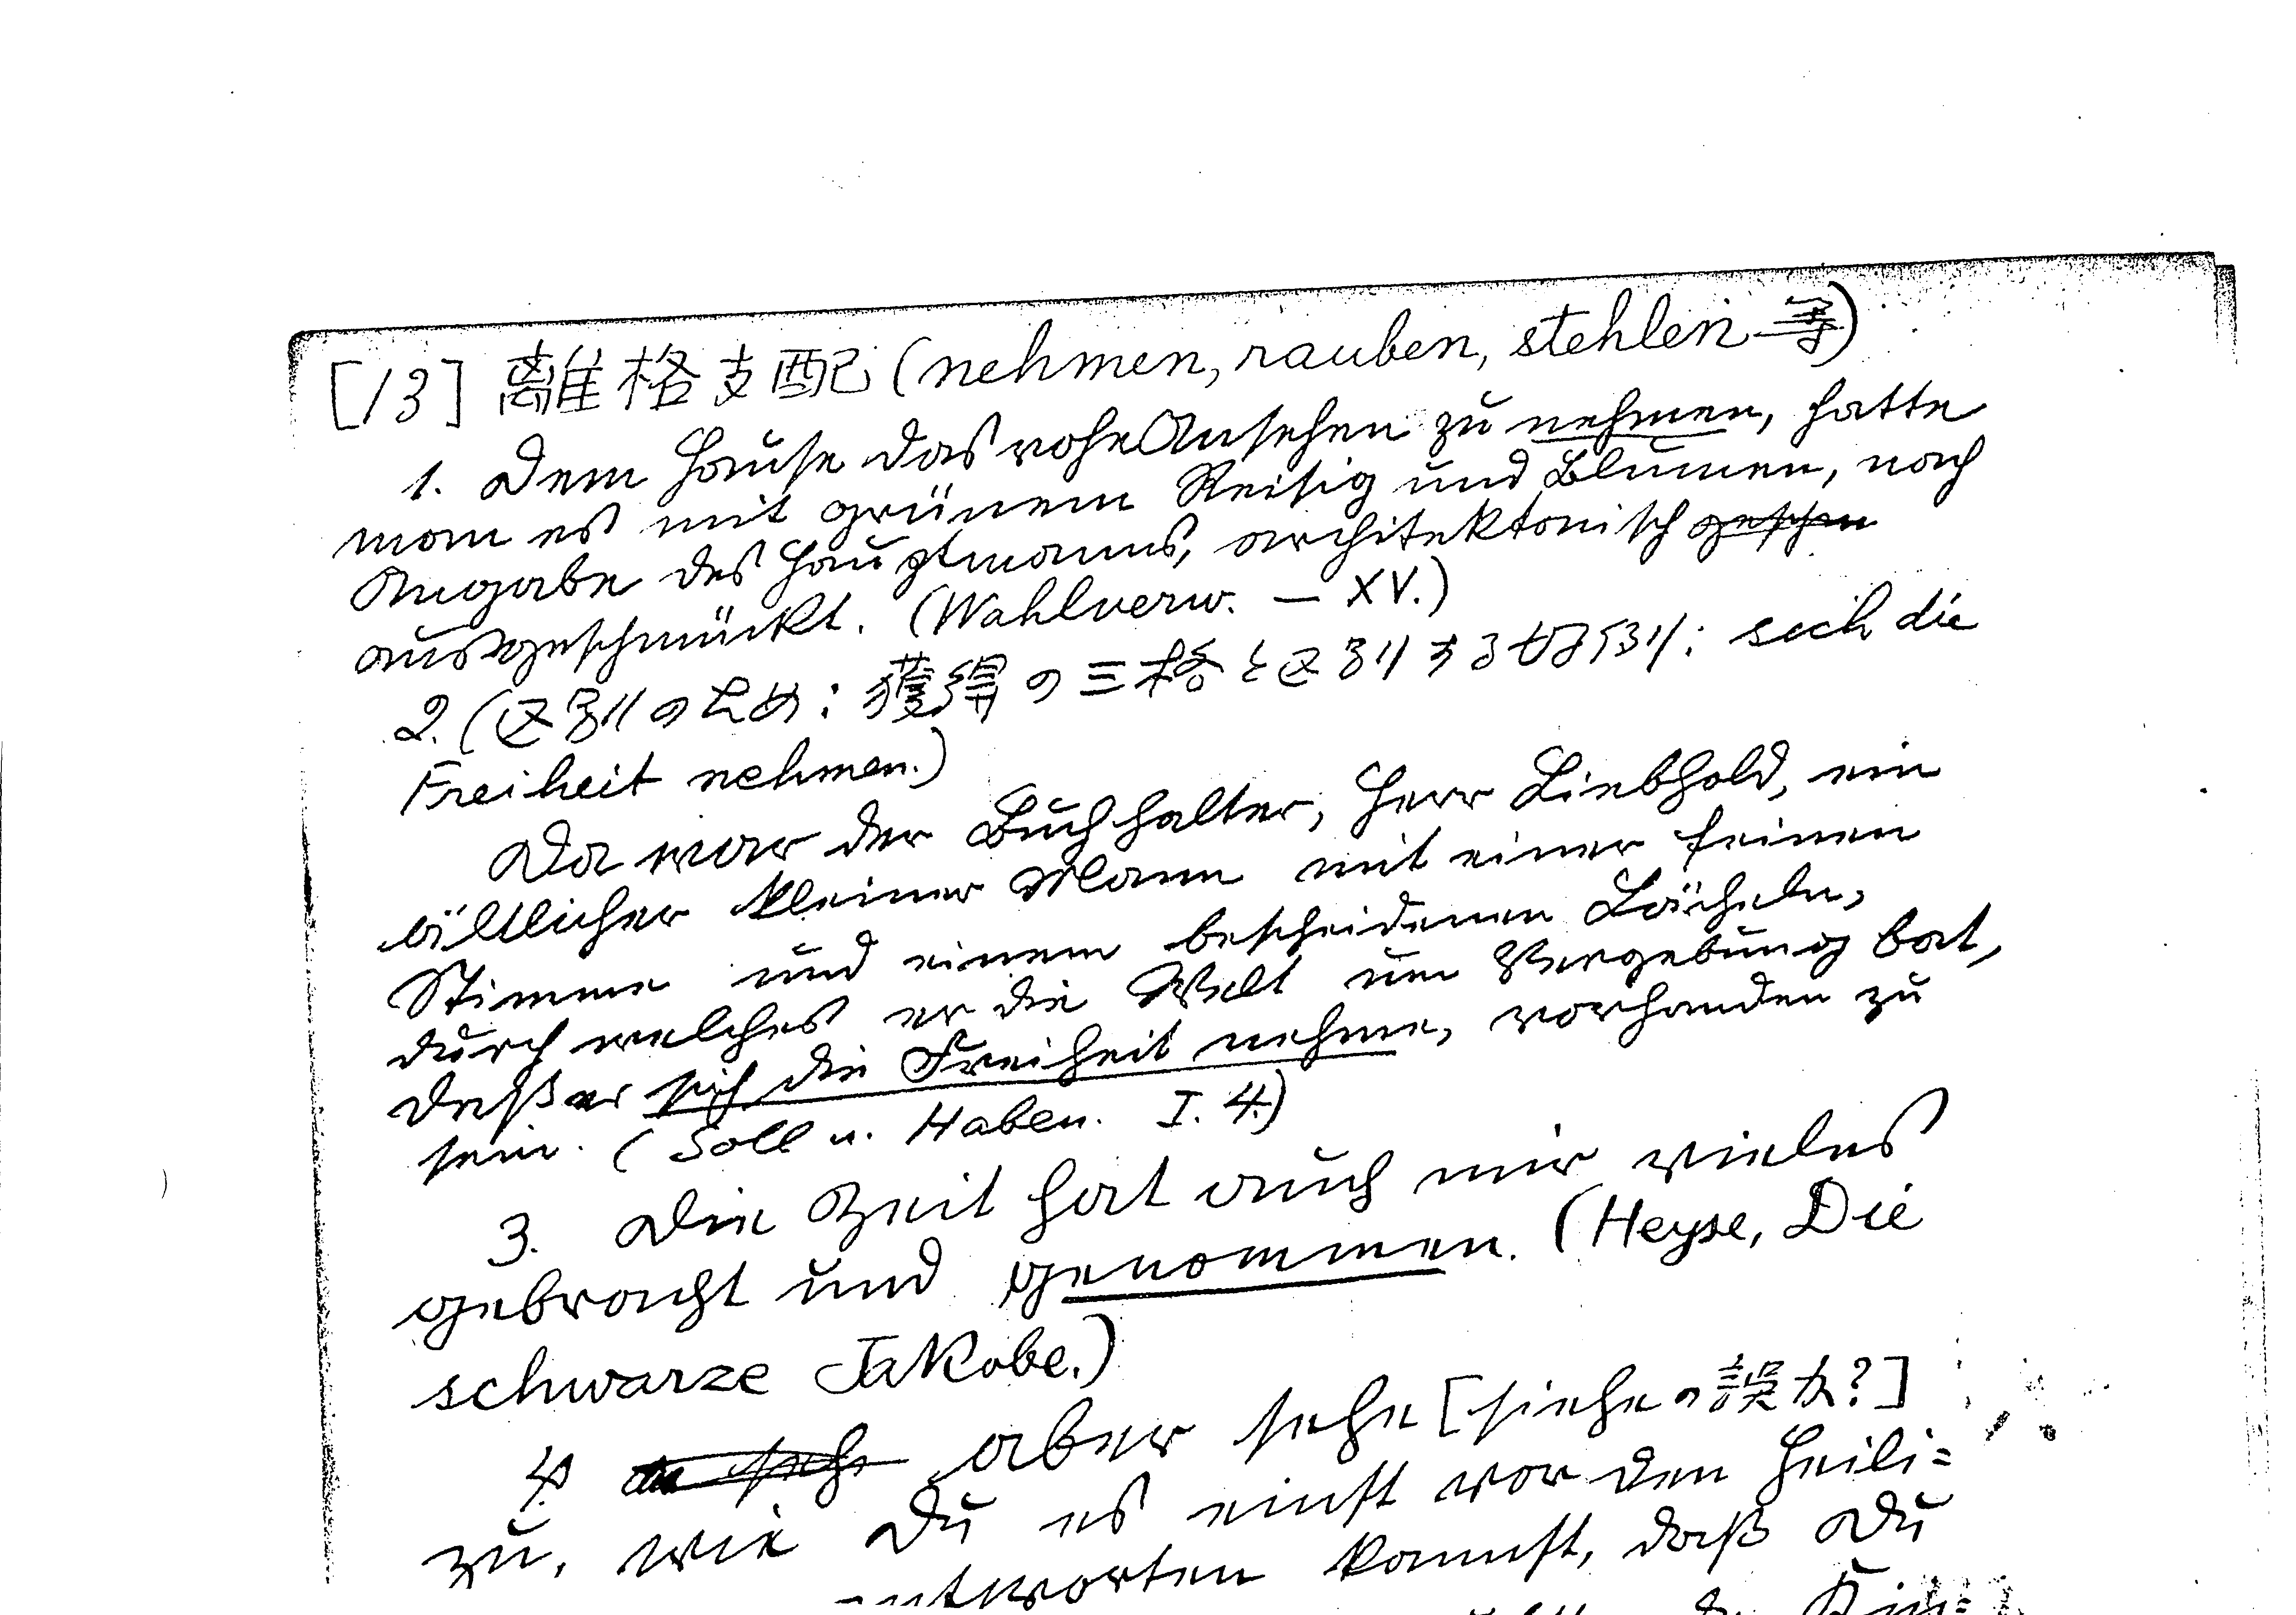 [13] 離格支配 (nehmen, rauben, stehlen 等)
1. Dem Hause das rohe Ansehen zu nehmen, hatte
man es mit grünem Reisig und Blumen, nach
Angabe des Hauptmanns, architektonisch
ausgeschmückt. (Wahlverw. — XV.)
2. (区別のため: 獲得の三格と区別する
sich die
Freiheit nehmen.)
Da war der Buchhalter, Herr Liebhold, ein
ältlicher kleiner Mann mit einer feinen
Stimme und einem bescheidenen Lächeln,
durch welches er die Welt um Vergebung bat,
daß er sich die Freiheit nehme, vorhanden zu
sein. (Soll u. Haben. I. 4.)
3. Die Zeit hat auch mir vieles
gebracht und genommen. (Heyse, Die
schwarze Jakobe.)
4. aber sehe [siehe の誤か?]
zu, wie Du es einst vor den Heili=
antworten kannst, daß Du